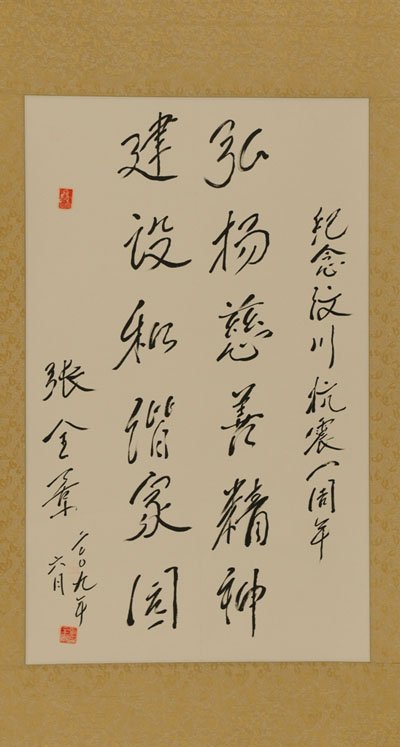 纪念汶川抗震一周年
弘扬慈善精神
建设和谐家园
张全景
二〇〇九年
六月